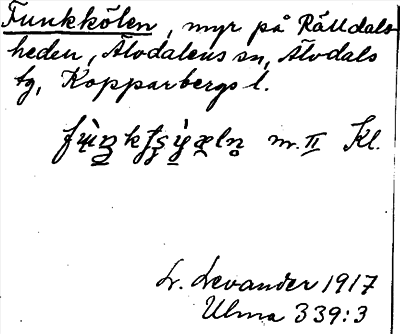 Funkkölen, myr på Rålldals-
heden, Älvdalens sn, Älvdals
tg, Kopparbergs l.
m. II Kl.
L. Levander 1917
Ulma 339:3